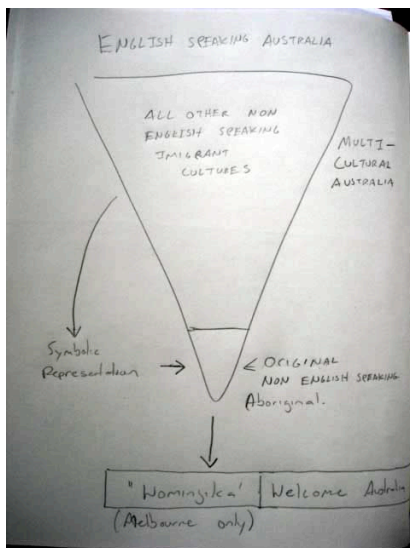 ENGLISH SPEAKING AUSTRALIA
ALL OTHER NON
ENGLISH SPEAKING
IMIGRANT
CULTURES
MULTI-
CULTURAL
AUSTRALIA
Symbolic
Representation
ORIGINAL
NON ENGLISH SPEAKING
Aboriginal.
"Wominjika" Welcome Australia
(Melbourne only)